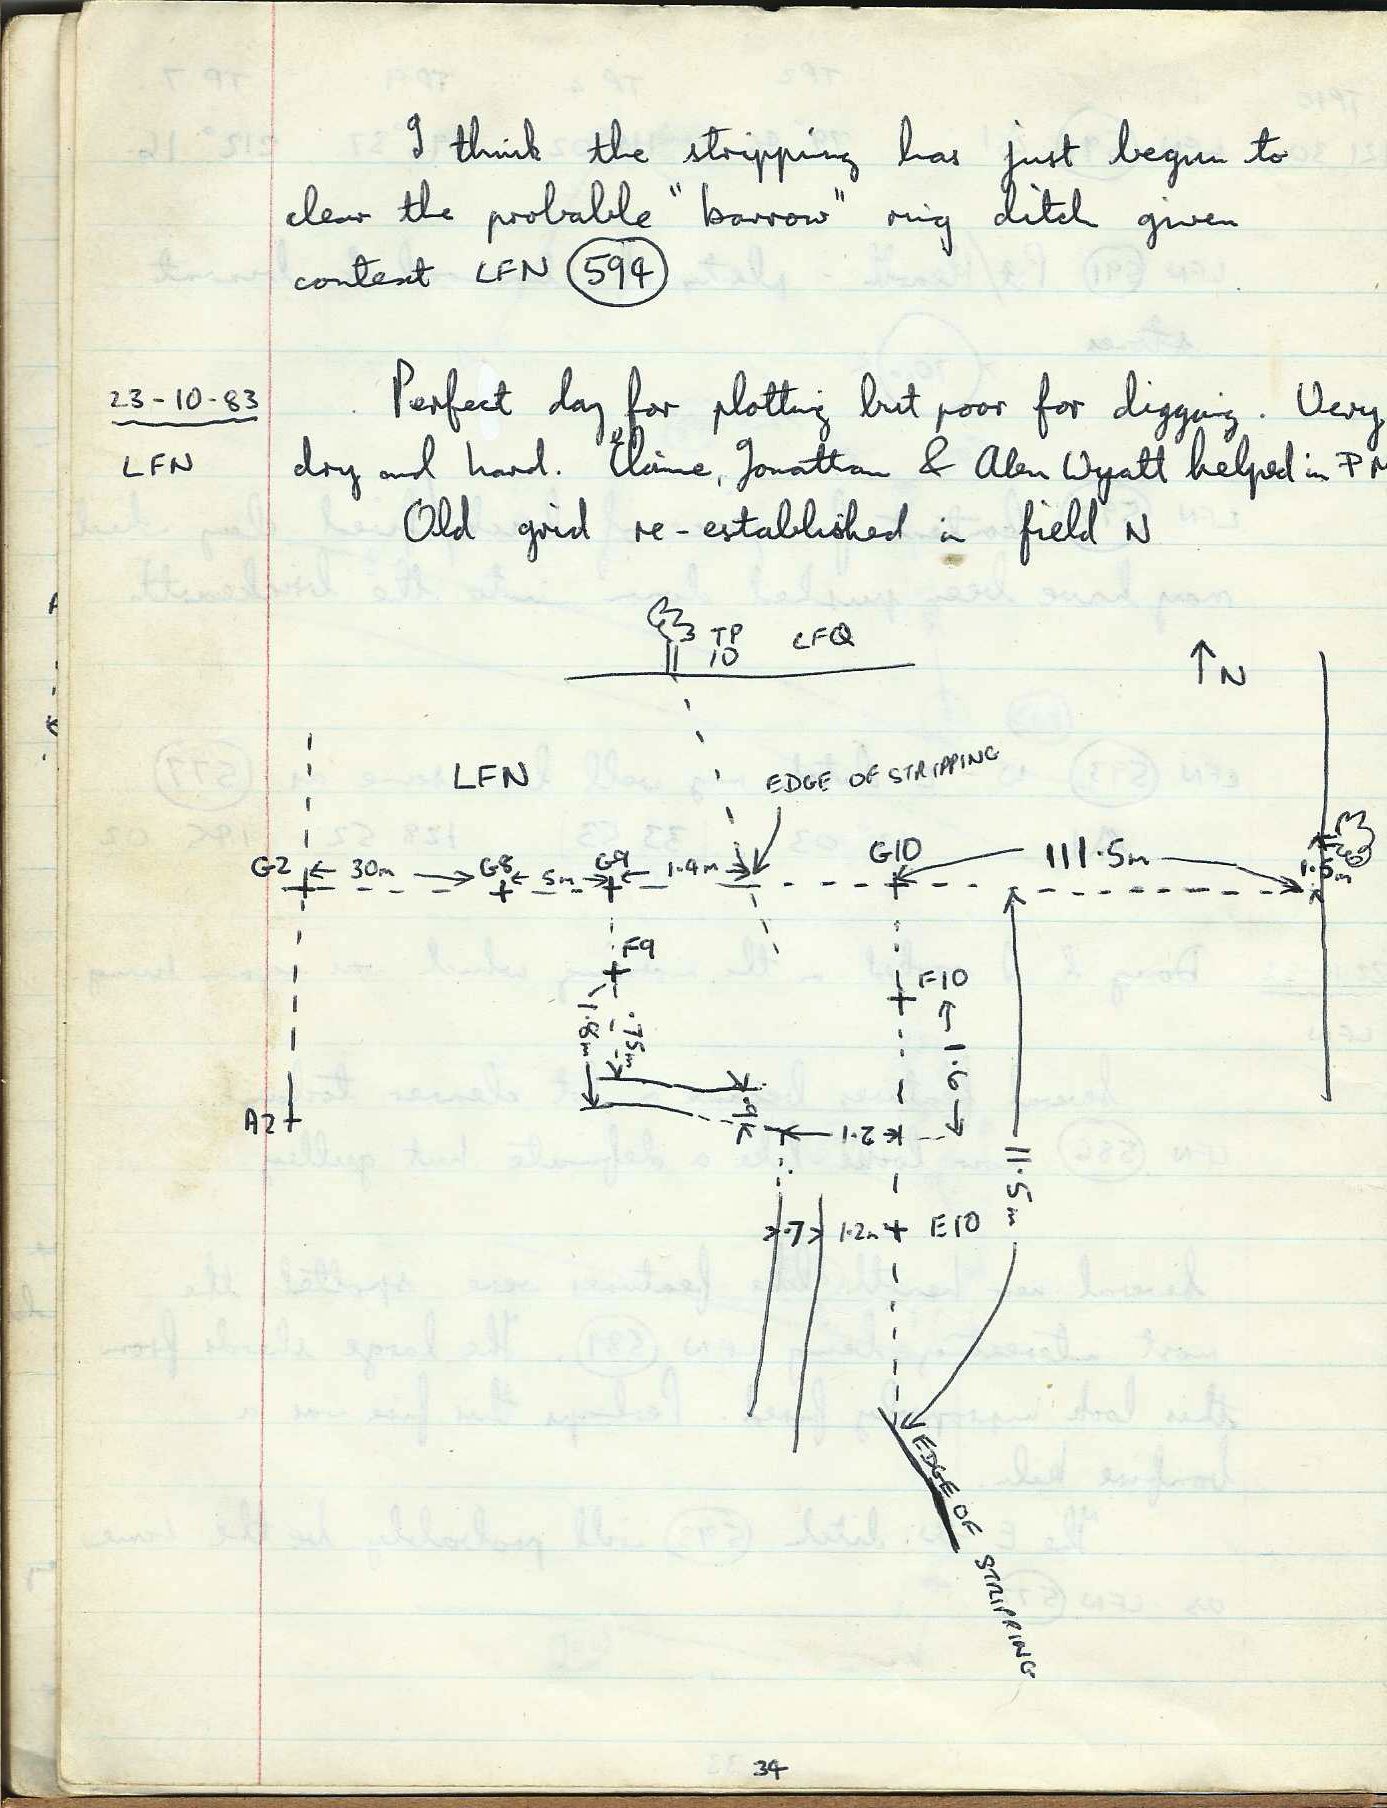 I think the stripping has just begun to
clear the probable "barrow" ring ditch given
context LFN 594
23-10-83
Perfect day for plotting but poor for digging. Very
LFN
dry and hard. Elaine, Jonathan & Alan Wyatt helped in PM
Old grid re-established in field N
TP
10
LFQ
↑N
LFN
EDGE OF STRIPPING
G2
30m
G8
5m
G9
1.4m
G10
111.5m
1.5m
F9
F10
1.8m
.75m
1.6
A2
.9
1.2
11.5m
.7
1.2m
E10
EDGE OF STRIPPING
34